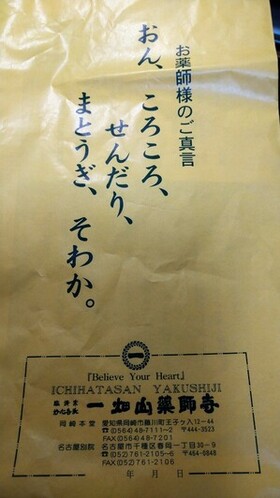 お薬師様のご真言
おん、ころころ、
せんだり、
まとうぎ、そわか。
一
『Believe Your Heart』
ICHIHATASAN YAKUSHIJI
一畑山薬師寺
岡崎本堂 愛知県岡崎市藤川町王子ケ入12-44
☎(0564)48-7111~2 〒444-3523
FAX(0564)48-7201
名古屋別院 名古屋市千種区春岡一丁目30-9
☎(052)761-2105~6 〒464-0848
FAX(052)761-2106
年 月 日